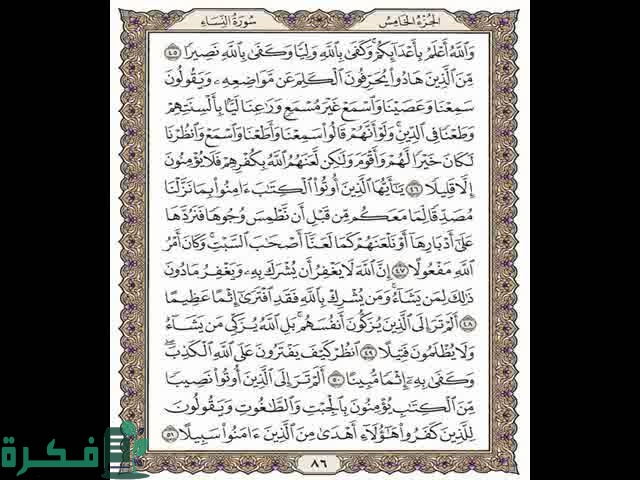 سُورَةُ النِّسَاءِ
الجُزْءُ الخَامِسُ
وَٱللَّهُ أَعۡلَمُ بِأَعۡدَآئِكُمۡۚ وَكَفَىٰ بِٱللَّهِ وَلِيّٗا وَكَفَىٰ بِٱللَّهِ نَصِيرٗا ٤٥
مِّنَ ٱلَّذِينَ هَادُواْ يُحَرِّفُونَ ٱلۡكَلِمَ عَن مَّوَاضِعِهِۦ وَيَقُولُونَ
سَمِعۡنَا وَعَصَيۡنَا وَٱسۡمَعۡ غَيۡرَ مُسۡمَعٖ وَرَٰعِنَا لَيَّۢا بِأَلۡسِنَتِهِمۡ
وَطَعۡنٗا فِي ٱلدِّينِۚ وَلَوۡ أَنَّهُمۡ قَالُواْ سَمِعۡنَا وَأَطَعۡنَا وَٱسۡمَعۡ وَٱنظُرۡنَا
لَكَانَ خَيۡرٗا لَّهُمۡ وَأَقۡوَمَ وَلَٰكِن لَّعَنَهُمُ ٱللَّهُ بِكُفۡرِهِمۡ فَلَا يُؤۡمِنُونَ
إِلَّا قَلِيلٗا ٤٦ يَٰٓأَيُّهَا ٱلَّذِينَ أُوتُواْ ٱلۡكِتَٰبَ ءَامِنُواْ بِمَا نَزَّلۡنَا
مُصَدِّقٗا لِّمَا مَعَكُم مِّن قَبۡلِ أَن نَّطۡمِسَ وُجُوهٗا فَنَرُدَّهَا
عَلَىٰٓ أَدۡبَارِهَآ أَوۡ نَلۡعَنَهُمۡ كَمَا لَعَنَّآ أَصۡحَٰبَ ٱلسَّبۡتِۚ وَكَانَ أَمۡرُ
ٱللَّهِ مَفۡعُولًا ٤٧ إِنَّ ٱللَّهَ لَا يَغۡفِرُ أَن يُشۡرَكَ بِهِۦ وَيَغۡفِرُ مَا دُونَ
ذَٰلِكَ لِمَن يَشَآءُۚ وَمَن يُشۡرِكۡ بِٱللَّهِ فَقَدِ ٱفۡتَرَىٰٓ إِثۡمًا عَظِيمًا
٤٨ أَلَمۡ تَرَ إِلَى ٱلَّذِينَ يُزَكُّونَ أَنفُسَهُمۚ بَلِ ٱللَّهُ يُزَكِّي مَن يَشَآءُ
وَلَا يُظۡلَمُونَ فَتِيلًا ٤٩ ٱنظُرۡ كَيۡفَ يَفۡتَرُونَ عَلَى ٱللَّهِ ٱلۡكَذِبَۖ
وَكَفَىٰ بِهِۦٓ إِثۡمٗا مُّبِينًا ٥٠ أَلَمۡ تَرَ إِلَى ٱلَّذِينَ أُوتُواْ نَصِيبٗا
مِّنَ ٱلۡكِتَٰبِ يُؤۡمِنُونَ بِٱلۡجِبۡتِ وَٱلطَّٰغُوتِ وَيَقُولُونَ
لِلَّذِينَ كَفَرُواْ هَٰٓؤُلَآءِ أَهۡدَىٰ مِنَ ٱلَّذِينَ ءَامَنُواْ سَبِيلًا ٥١
٨٦
فكرة